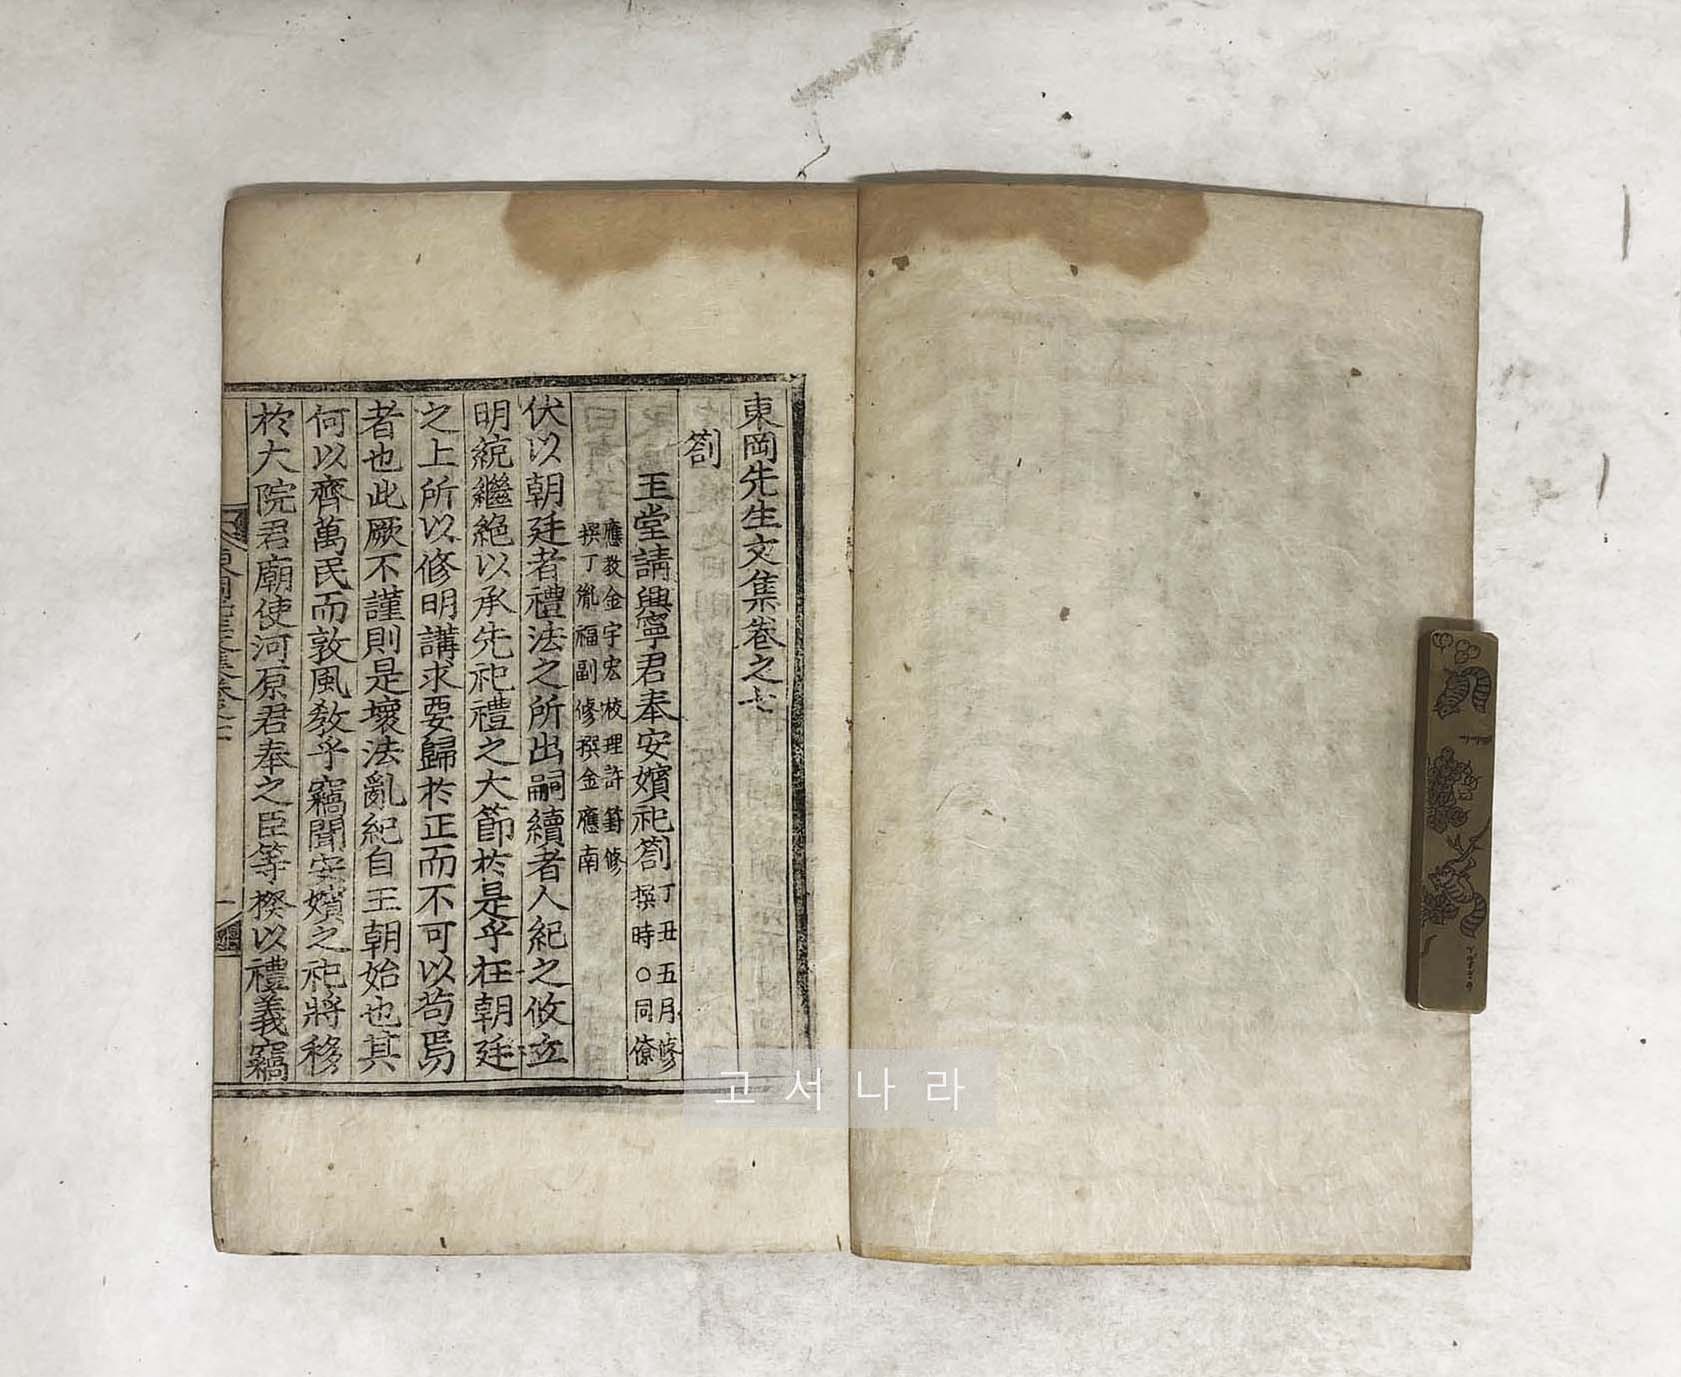 東岡先生文集卷之七
劄
玉堂請興寧君奉安嬪祀劄丁丑五月修撰時○同僚
應敎金宇宏校理許篈修撰丁胤福副修撰金應南
伏以朝廷者禮法之所出嗣續者人紀之攸立
明統繼絶以承先祀禮之大節於是乎在朝廷
之上所以修明講求要歸於正而不可以苟焉
者也此厥不謹則是壞法亂紀自王朝始也其
何以齊萬民而敦風敎乎竊聞安嬪之祀將移
於大院君廟使河原君奉之臣等揆以禮義竊
고서나라